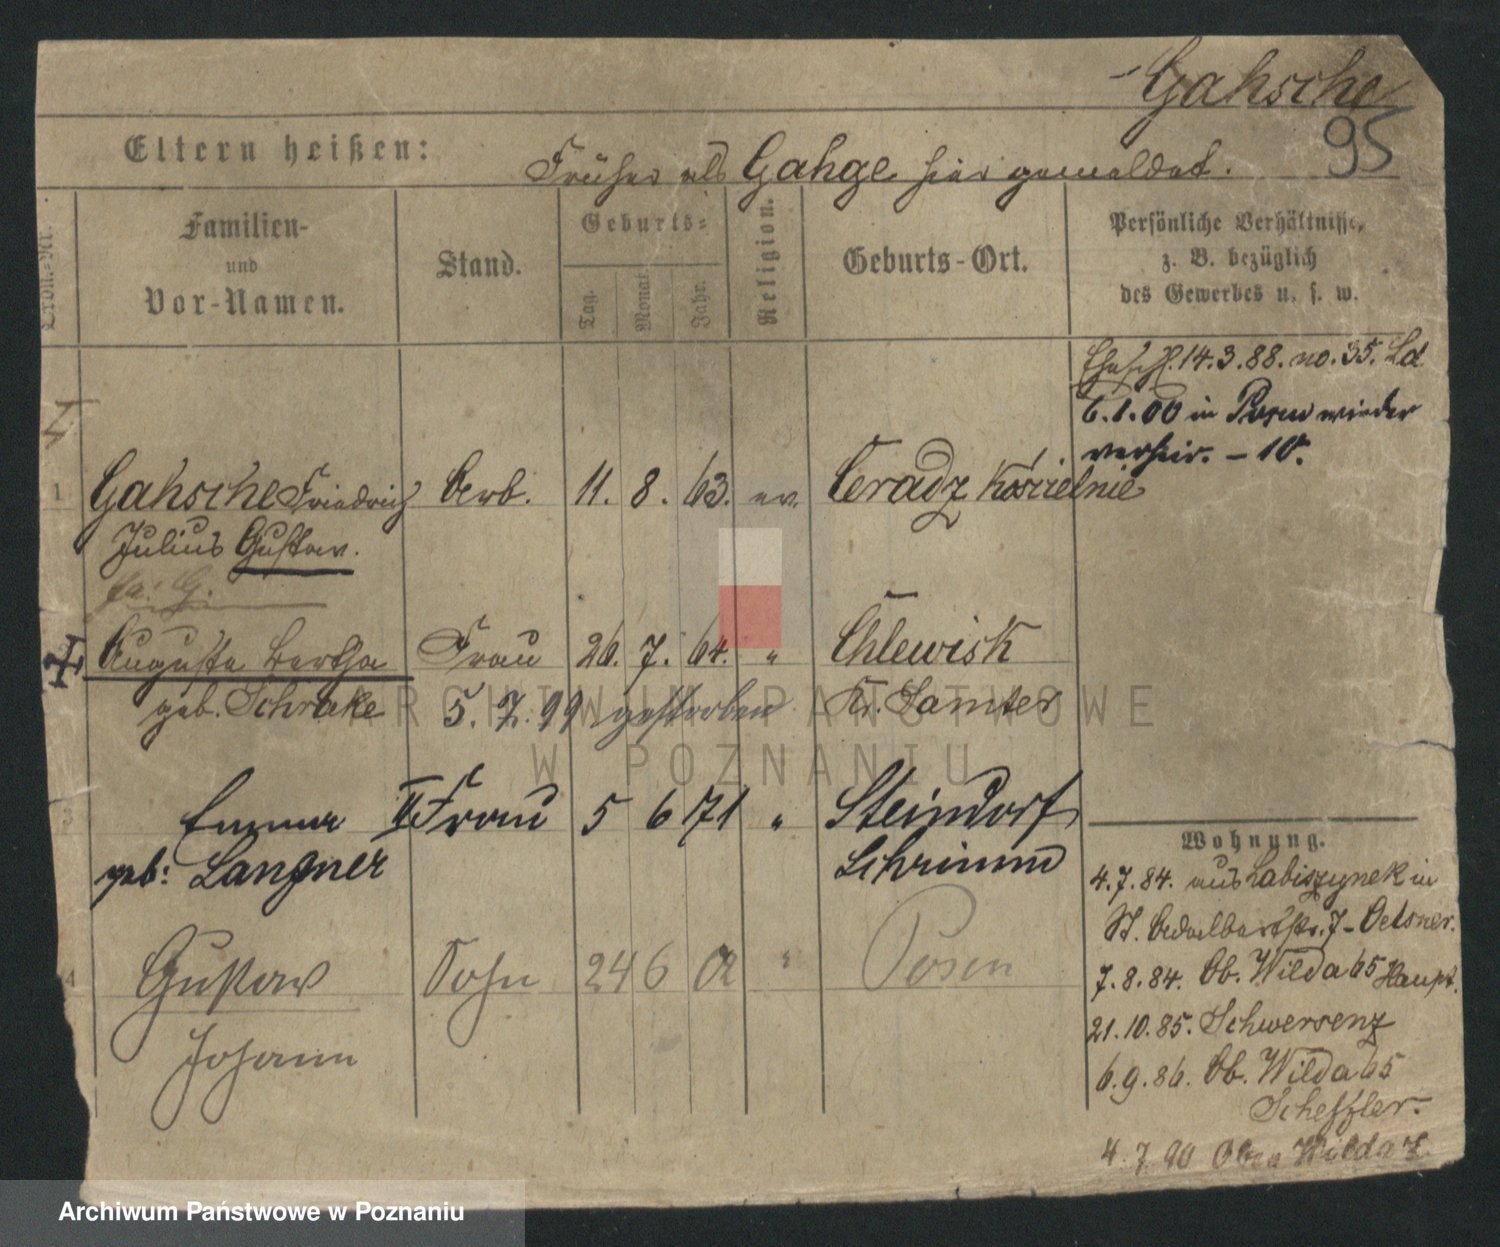 Gahsche
95
Eltern heißen:
Früher als Gahge hier gemeldet.
Ordn.-Nr.
Familien-
und
Vor-Namen.
Stand.
Geburts-
Tag.
Monat.
Jahr.
Religion.
Geburts-Ort.
Persönliche Verhältnisse,
z. B. bezüglich
des Gewerbes u. s. w.
Eheschl. 14.3.88. no. 35. Ld
6.1.00 in Posen wieder
verheir. – 10.
1 Gahsche Friedrich Arb. 11. 8. 63. ev. Ceradz Kościelnie
Julius Gustav.
Auguste Bertha Frau 26. 7. 64. " Chlewisk
geb. Schrake 5. 7. 99 gestorben Kr. Samter
Emma II Frau 5 6 71 " Steindorf
geb: Langner Schrimm
4 Gustav Sohn 24 6 01 " Posen
Johann
Wohnung.
4.7.84. aus Labiszynek in
St. Adalbertstr. 7 – Oelsner.
7.8.84. Ob. Wilda 65 Haupt.
21.10.85. Schwersenz
6.9.86. Ob. Wilda 65
Scheffler.
4.7.90 Ober Wilda 7.
ARCHIWUM PAŃSTWOWE
W POZNANIU
Archiwum Państwowe w Poznaniu